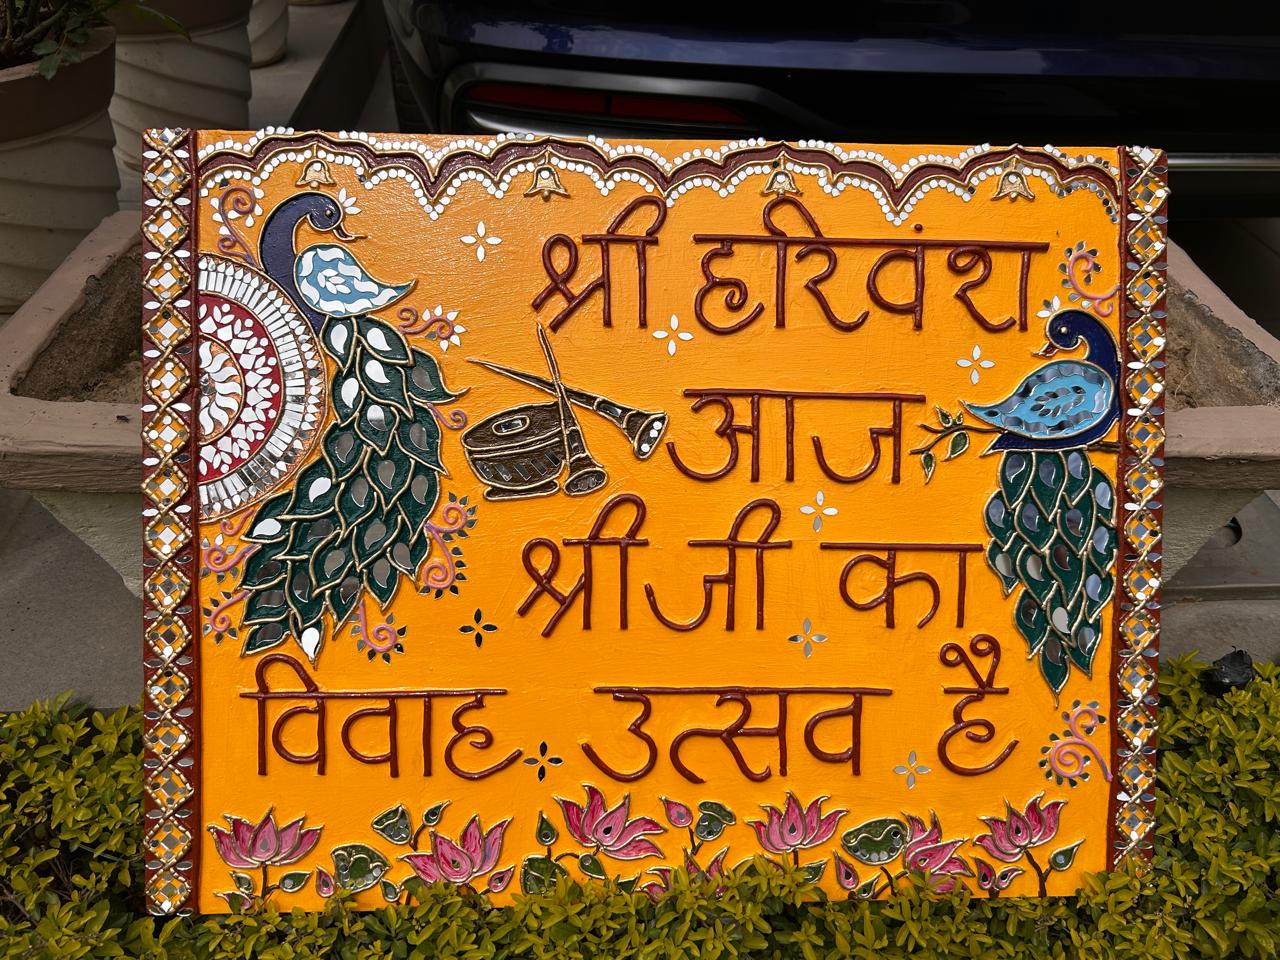 श्री हरिवंश
आज
श्री जी का
विवाह उत्सव है